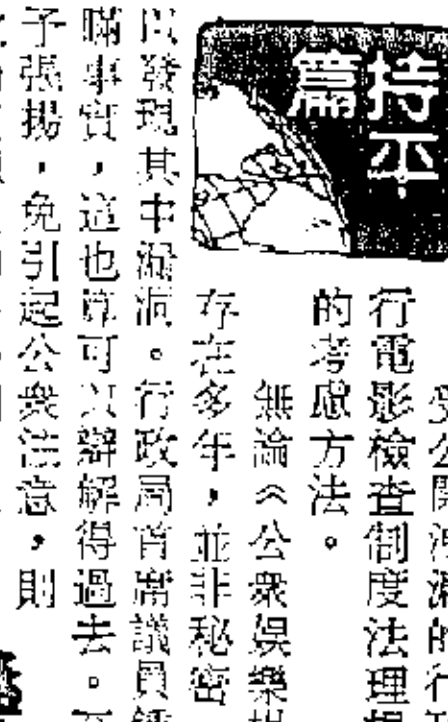 持平
篇
受公開
行電影檢查制度法理
的考慮方法。
無論《公衆娛樂
存在多年，並非秘密
以發現其中漏洞。行政局首席議員
瞞事實，這也算可以辯解得過去。
子張揚，免引起公衆注意，則